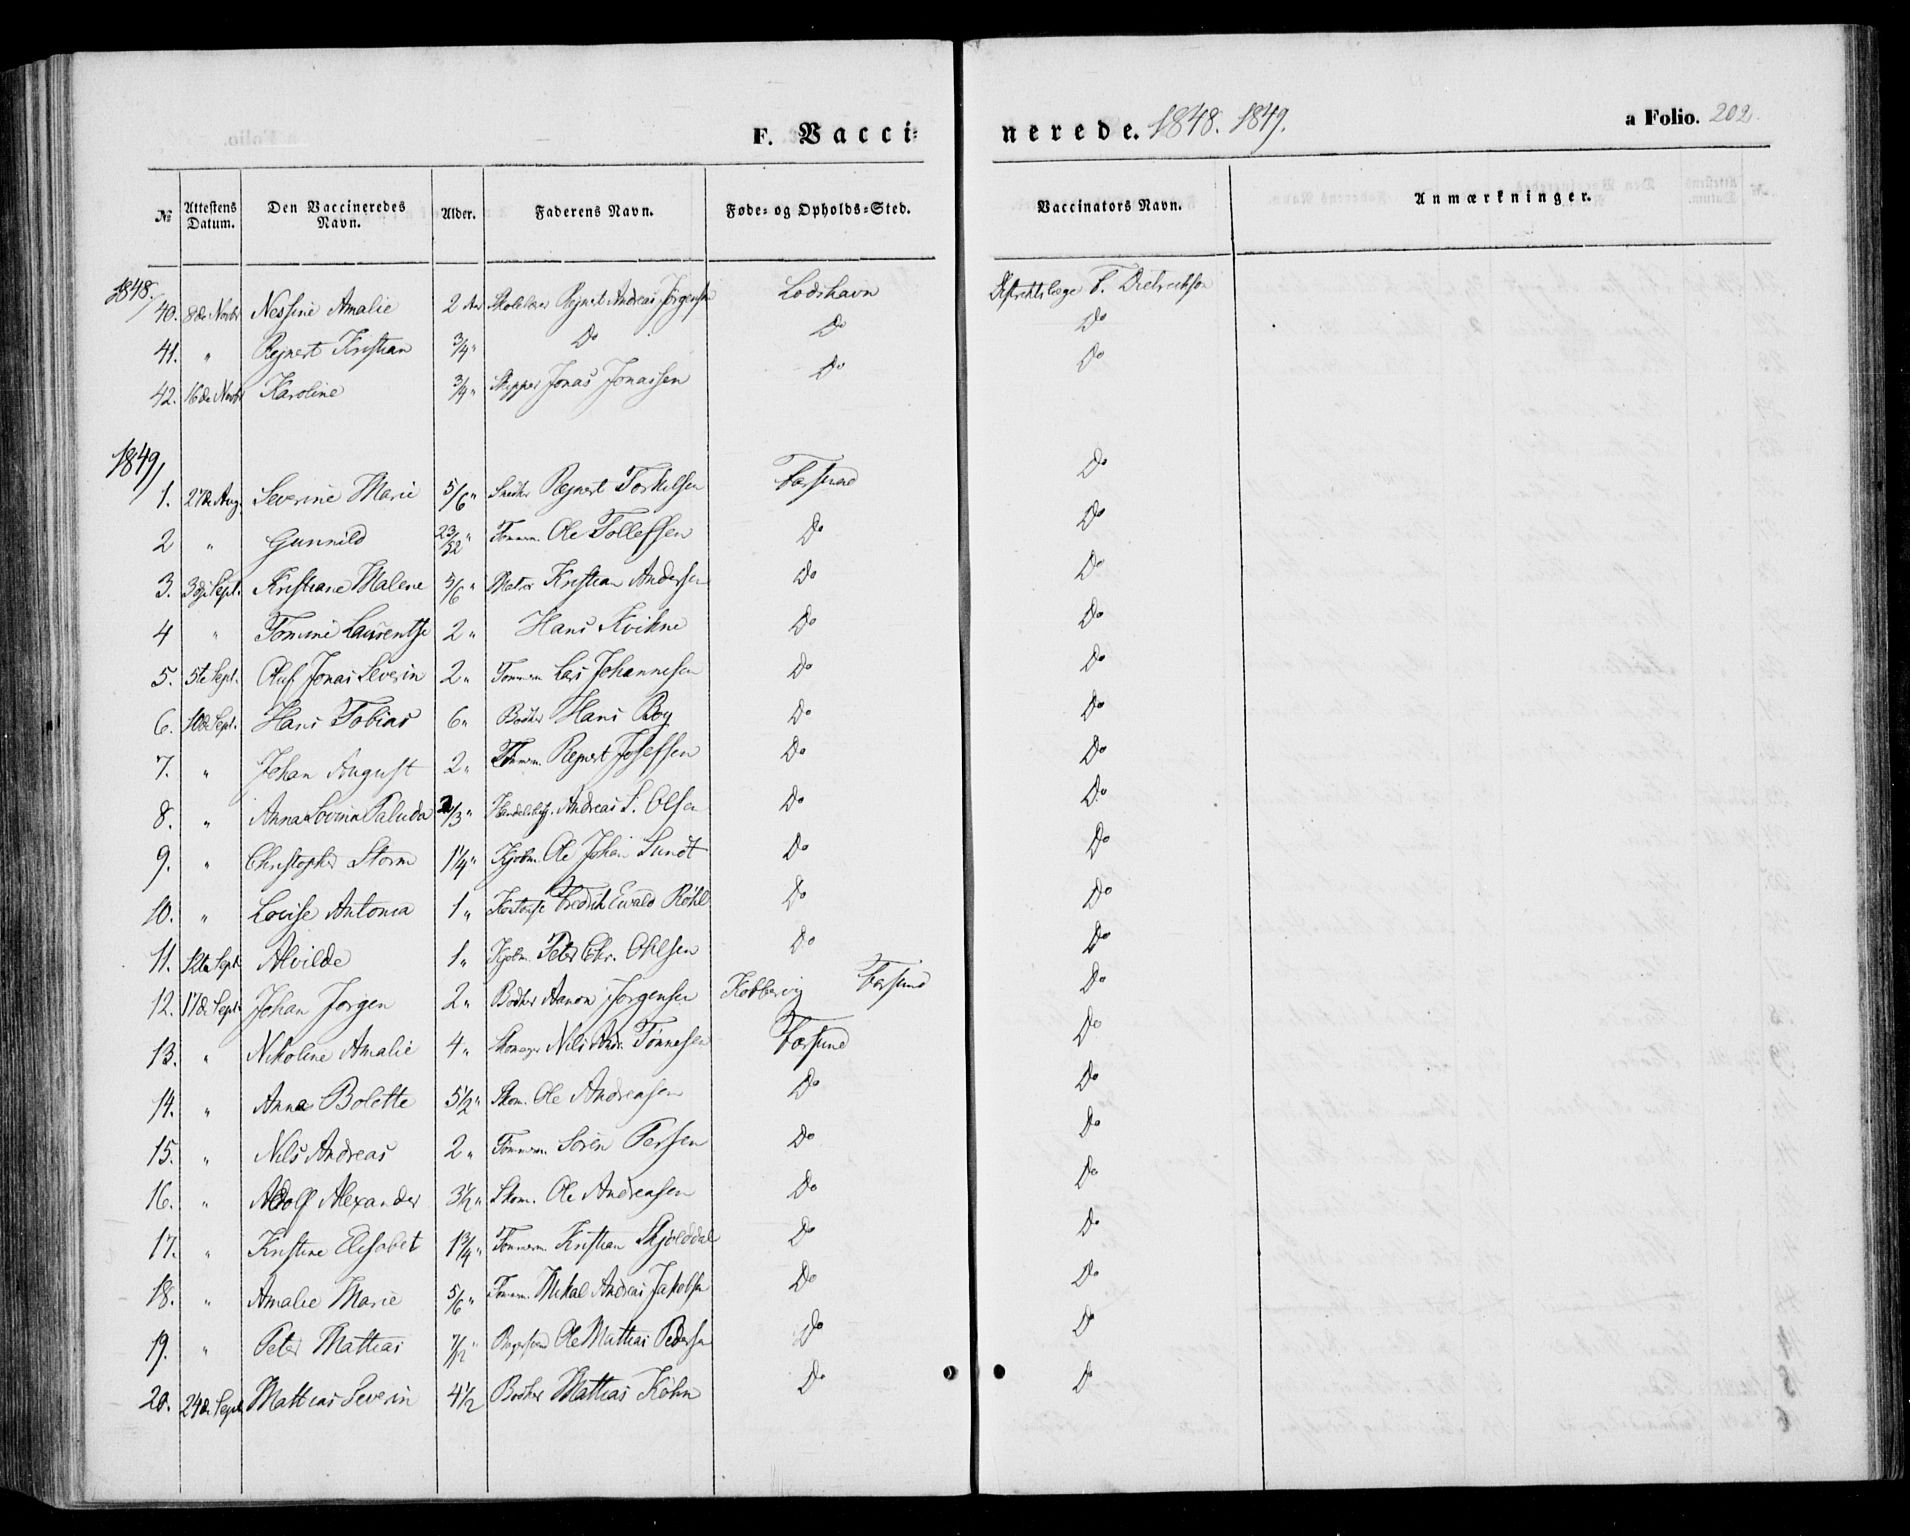 F. Vaccinerede. 1848. 1849. a Folio. 202.
№ Attestens Datum. Den Vaccineredes Navn. Alder. Faderens Navn. Føde- og Opholds-Sted. Vaccinators Navn. Anmærkninger.
1848.
40. 8de Novbr Nessine Amalie 2 Aar Rejnert Andreas Jørgensen Lodshavn Distriktslæge F. Dietrichson
41. " Rejnert Kristian 3/4 " Do Do Do
42. 16de Novbr Karoline 3/4 " Skipper Jonas Jonassen Do Do
1849
1. 27de Aug. Severine Marie 5/6 " Rejnert Torkelsen Farsund Do
2 " Gunnild 23/52 " Tømmerm. Ole Tollefsen Do Do
3. 3dje Sept. Kristiane Malene 5/6 " Matros Kristian Andersen Do Do
4 " Tomine Laurentse 2 " Hans Kvikne Do Do
5. 5te Sept. Oluf Jonas Severin 2 " Tømmerm Lars Johannesen Do Do
6. 10de Sept. Hans Tobias 6 " Bødker Hans Boy Do Do
7. " Johan August 2 " Tømmerm. Rejnert Josefsen Do Do
8. " Anna Lovina Paluda 2/3 " Andreas S. Olsen Do Do
9. " Christopher Storm 1 1/4 " Kjøbm. Ole Johan Sundt Do Do
10. " Louise Antonia 1 " Fredrik Ewald Röhl Do Do
11. 12te Sept. Alvilde 1 " Kjøbm. Peter Chr. Ohlsen Do Do
12. 17de Sept. Johan Jørgen 2 " Bødker Aanon Jørgensen Kobbervig Farsund Do
13. " Nikoline Amalie 4 " Skomager Nils Andr. Tønnesen Farsund Do
14. " Anna Bolette 5 1/2 " Skom. Ole Andreasen Do Do
15. " Nils Andreas 2 " Tømmerm. Søren Persen Do Do
16. " Adolf Alexander 3 1/2 " Skom. Ole Andreasen Do Do
17. " Kristine Elisabet 1 3/4 " Tømmerm. Kristian Skjølddal Do Do
18. " Amalie Marie 5/6 " Tømmerm. Mikal Andreas Jakobsen Do Do
19. " Peter Mathias 7/12 " Ole Mathias Pedersen Do Do
20. 24de Sept. Mathias Severin 4 1/2 Bødker Mathias Köhn Do Do